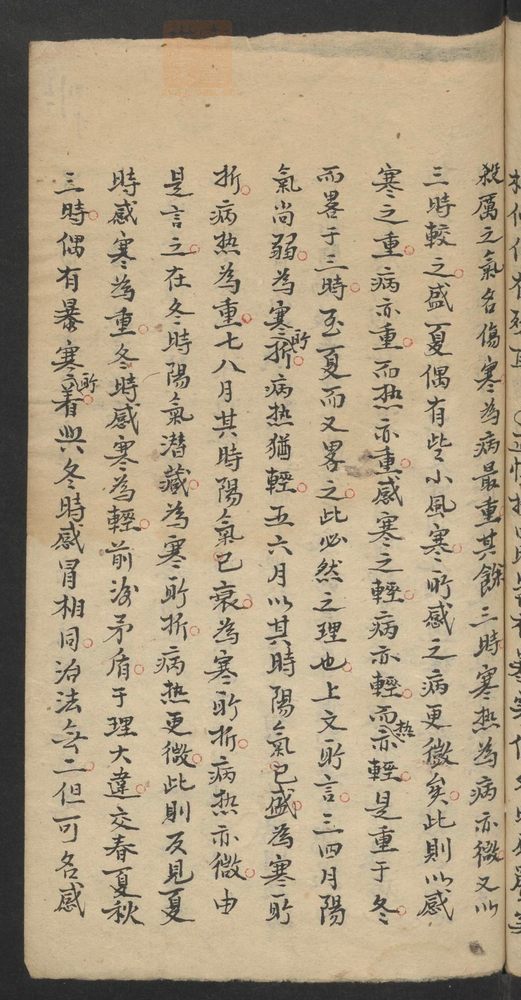 殺厲之氣名傷寒為病最重其餘三時寒熱為病亦微又以
三時較之盛夏偶有些小風寒所感之病更微矣此則以感
寒之重病亦重而热亦重感寒之輕病亦輕而热亦輕是重于冬
而畧于三時至夏而又畧之此必然之理也上文所言三四月陽
氣尚弱為寒所折病热猶輕五六月以其時陽氣已盛為寒所
折病热為重七八月其時陽氣已衰為寒所折病热亦微由
是言之在冬時陽氣潜藏為寒所折病热更微此則反見夏
時感寒為重冬時感寒為輕前後矛盾于理大違交春夏秋
三時偶有暴寒所著與冬時感冒相同治法無二但可名感